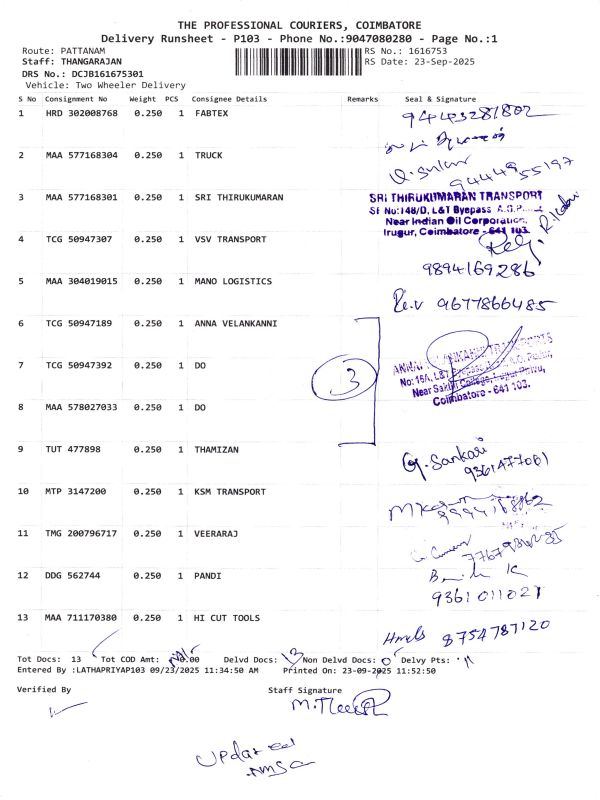 THE PROFESSIONAL COURIERS, COIMBATORE
Delivery Runsheet - P103 - Phone No.:9047080280 - Page No.:1
Route: PATTANAM RS No.: 1616753
Staff: THANGARAJAN RS Date: 23-Sep-2025
DRS No.: DCJB161675301
Vehicle: Two Wheeler Delivery
S No Consignment No Weight PCS Consignee Details Remarks Seal & Signature
1 HRD 302008768 0.250 1 FABTEX
2 MAA 577168304 0.250 1 TRUCK
94449 55197
3 MAA 577168301 0.250 1 SRI THIRUKUMARAN SRI THIRUKUMARAN TRANSPORT
SF No:148/D, L&T Byepass
Near Indian Oil Corporation,
Irugur, Coimbatore - 641 103.
4 TCG 50947307 0.250 1 VSV TRANSPORT
9894169286
5 MAA 304019015 0.250 1 MANO LOGISTICS
9677866485
6 TCG 50947189 0.250 1 ANNA VELANKANNI
7 TCG 50947392 0.250 1 DO
3
8 MAA 578027033 0.250 1 DO
Coimbatore - 641 103.
9 TUT 477898 0.250 1 THAMIZAN
G. Sankari
9361477061
10 MTP 3147200 0.250 1 KSM TRANSPORT
11 TMG 200796717 0.250 1 VEERARAJ
12 DDG 562744 0.250 1 PANDI
9361011021
13 MAA 711170380 0.250 1 HI CUT TOOLS
8754787120
Tot Docs: 13 Tot COD Amt: 0.00 Delvd Docs: 13 Non Delvd Docs: 0 Delvy Pts: 11
Entered By :LATHAPRIYAP103 09/23/2025 11:34:50 AM Printed On: 23-09-2025 11:52:50
Verified By Staff Signature
Updated